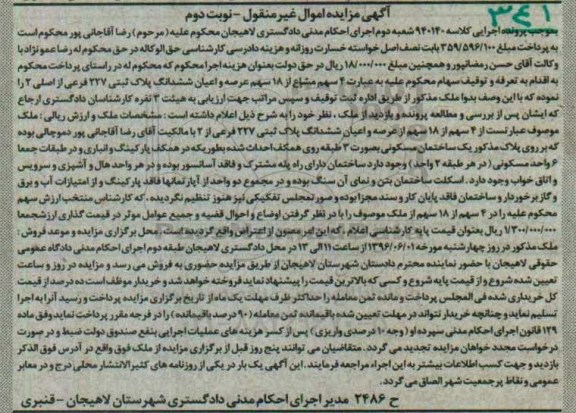 ۳٤۱
آگهی مزایده اموال غیر منقول - نوبت دوم
بموجب پرونده اجرایی کلاسه ۹۴۰۱۴۰ شعبه دوم اجرای احکام مدنی دادگستری لاهیجان محکوم علیه (مرحوم) رضا آقاجانی پور محکوم است
به پرداخت مبلغ ۳۵۹/۵۹۶/۱۰۰ بابت نصف اصل خواسته خسارت روزانه و هزینه دادرسی کارشناسی حق الوکاله در حق محکوم له رضا عمو نژاد با
وکالت آقای حسن رمضانپور و همچنین مبلغ ۱۸/۰۰۰/۰۰۰ ریال در حق دولت بعنوان هزینه اجرا محکوم که محکوم له در راستای پرداخت محکوم
به اقدام به تعرفه و توقیف سهام محکوم علیه به عبارت ۴ سهم مشاع از ۱۸ سهم عرصه و اعیان ششدانگ پلاک ثبتی ۲۲۷ فرعی از اصلی ۲ را
نموده که با این وصف بدوا ملک مذکور از طریق اداره ثبت توقیف و سپس مراتب جهت ارزیابی به هیئت ۳ نفره کارشناسان دادگستری ارجاع
که ایشان پس از بررسی و مطالعه پرونده و بازدید از ملک، نظر خود را به شرح ذیل اعلام داشته است: مشخصات ملک و ارزش ریالی: ملک
موصوف عبارتست از ۴ سهم از ۱۸ سهم از عرصه و اعیان ششدانگ پلاک ثبتی ۲۲۷ فرعی از ۲ با مالکیت آقای رضا آقاجانی پور دموچالی بوده
که بر روی پلاک مذکور یک ساختمان مسکونی بصورت ۳ طبقه روی همکف احداث شده بطوریکه در همکف پارکینگ و انباری و در طبقات جمعا
۶ واحد مسکونی (در هر طبقه ۲ واحد) وجود دارد ساختمان دارای راه پله مشترک و فاقد آسانسور بوده و در هر واحد هال و آشپزی و سرویس
و اتاق خواب وجود دارد. اسکلت ساختمان بتن و نمای آن سنگ بوده و در مجموع دو واحد از آپارتمانها فاقد پارکینگ و از امتیازات آب و برق
و گاز برخوردار و ساختمان فاقد پایان کار و سند مجزا بوده و صورتمجلس تفکیکی نیز هنوز تنظیم نگردیده. که کارشناس منتخب ارزش سهم
محکوم علیه را در ۴ سهم از ۱۸ سهم از ملک موصوف را با در نظر گرفتن اوضاع و احوال قضیه و جمیع عوامل موثر در قیمت گذاری ارزشجمعا
۱/۳۰۰/۰۰۰/۰۰۰ ریال بعنوان قیمت پایه کارشناسی اعلام. که این امر مصون از اعتراض واقع گردیده است. محل برگزاری مزایده و موعد فروش:
ملک مذکور در روز چهارشنبه مورخه ۱۳۹۶/۰۶/۰۱ از ساعت ۱۱ الی ۱۳ در محل دادگستری لاهیجان طبقه دوم اجرای احکام مدنی دادگاه عمومی
حقوقی لاهیجان با حضور نماینده محترم دادستان شهرستان لاهیجان از طریق مزایده حضوری به فروش می رسد و مزایده در روز و ساعت
تعیین شده شروع و از قیمت پایه شروع و کسی که بالاترین قیمت را پیشنهاد نماید فروخته خواهد شد و خریدار موظف است ده درصد از قیمت
کل خریداری شده فی المجلس پرداخت و مانده ثمن معامله را حداکثر ظرف مهلت یک ماه از تاریخ برگزاری مزایده پرداخت و رسید آنرا به اجرا
تسلیم نماید و چنانچه خریدار نتواند در مهلت تعیین شده باقیمانده ثمن معامله (۹۰ درصد باقیمانده) را در فرجه مقرر پرداخت نماید وفق ماده
۱۲۹ قانون اجرای احکام مدنی سپرده او (وجه ۱۰ درصدی واریزی) پس از کسر هزینه های عملیات اجرایی بنفع صندوق دولت ضبط و در صورت
درخواست مجدد خواهان مزایده تجدید می گردد. متقاضیان می توانند پنج روز قبل از برگزاری مزایده از ملک فوق واقع در آدرس فوق الذکر
بازدید و جهت کسب اطلاعات بیشتر به این اجراء مراجعه فرمایند. این آگهی یک بار در یکی از روزنامه های کثیرالانتشار محلی درج و در معابر
عمومی و نقاط پر جمعیت شهر الصاق می گردد.
ح ۲۴۸۶ مدیر اجرای احکام مدنی دادگستری شهرستان لاهیجان - قنبری